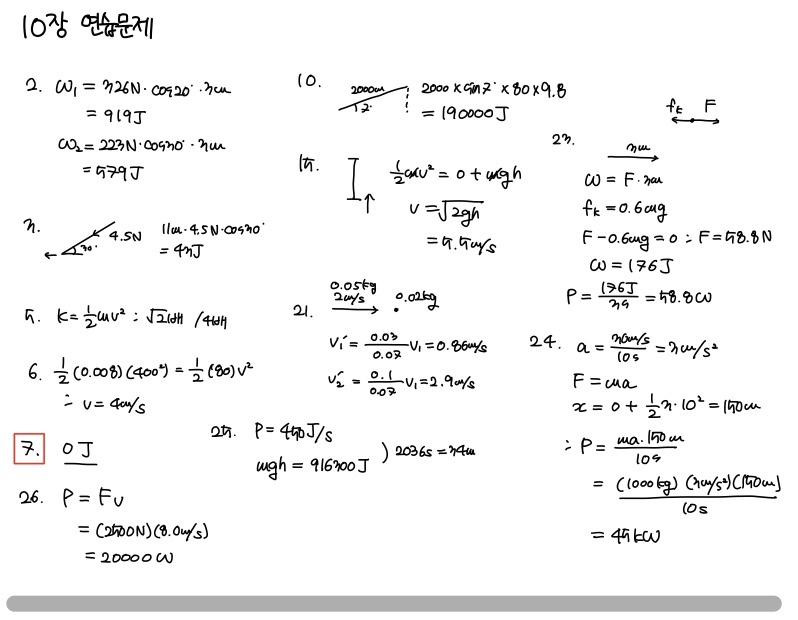 10장 연습문제
2. W₁ = 326N·cos20°·3m
= 919J
W₂ = 223N·cos30°·3m
= 579J
3. 30° 4.5N 11m·4.5N·cos30°
= 43J
5. K = 1/2 mv² ∴ √2배 / 4배
6. 1/2 (0.008)(400²) = 1/2 (80)v²
∴ v = 4m/s
7. 0J
26. P = Fv
= (2500N)(8.0m/s)
= 20000W
10. 2000m 7° 2000×sin7°×80×9.8
= 190000J
15. 1/2 mv² = 0 + mgh
v = √2gh
= 5.5m/s
21. 0.05kg 2m/s 0.02kg
v₁' = 0.03/0.07 v₁ = 0.86m/s
v₂' = 0.1/0.07 v₁ = 2.9m/s
25. P = 450J/s
mgh = 916300J ) 2036s = 34m
fk F
23. 3m
W = F·3m
fk = 0.6mg
F - 0.6mg = 0 ∴ F = 58.8N
W = 176J
P = 176J/3s = 58.8W
24. a = 30m/s/10s = 3m/s²
F = ma
x = 0 + 1/2 3·10² = 150m
∴ P = ma·150m/10s
= (1000kg)(3m/s²)(150m)/10s
= 45kW